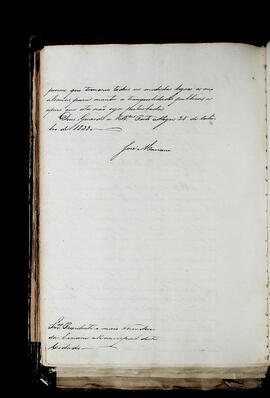 porem que tomarei todas as medidas legaes a meu
alcance para manter a tranquilidade publica e
afim que ella não seja perturbada.
Deus Guarde a VSas. Porto Alegre 25 de Outu
bro de 1833.
José Mariani
Snr. Presidente e mais Vereadores
da Camara Municipal desta
Cidade